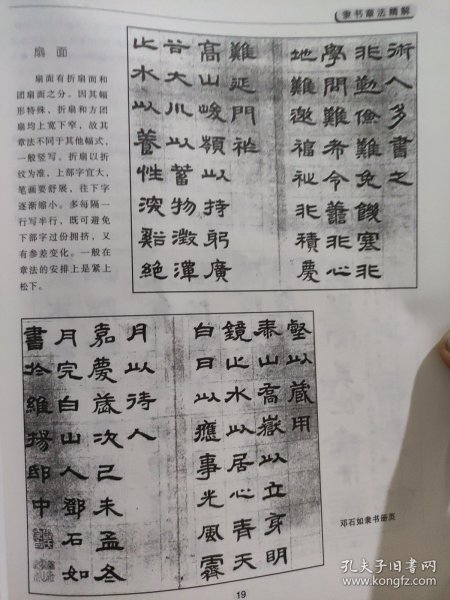 隶书章法精解
扇面
扇面有折扇面和
团扇面之分。因其幅
形特殊，折扇和方团
扇均上宽下窄，故其
章法不同于其他幅式，
一般竖写。折扇以折
纹为准，上部字宜大，
笔画要舒展，往下字
逐渐缩小。多每隔一
行写半行，既可避免
下部字过份拥挤，又
有参差变化。一般在
章法的安排上是紧上
松下。
術人多書之
非勤儉難免饑寒非
學問難希令譽非心
地難邀福祉非積慶
難延門祚
高山峻嶺以持躬廣
谷大川以蓄物澂潭
止水以養性深谿絕
壑以藏用
泰山高嶽以立身明
鏡止水以居心青天
白日以應事光風霽
月以待人
嘉慶歲次己未孟冬
月完白山人鄧石如
書於維揚邸中
邓石如隶书册页
19
孔夫子旧书网